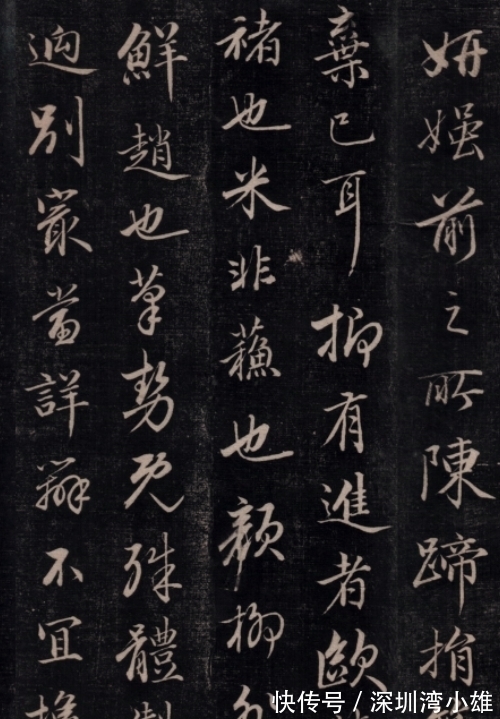 妍媸前之所陳蹄捐
棄已耳抑有進者歐
褚也米非蘓也顏柳
鮮趙也筆勢既殊體
逈別㝡當詳辨不宜
快传号/深圳湾小雄